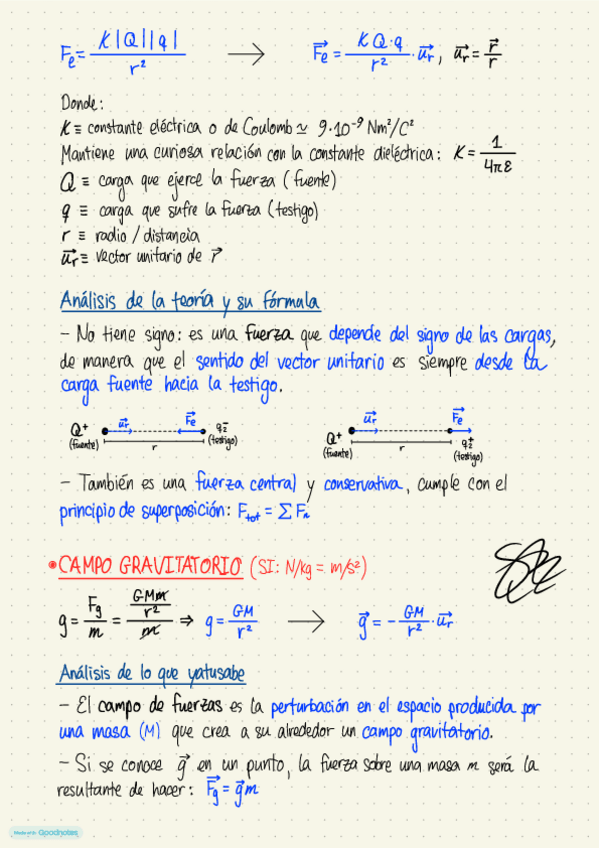 Fe = K|Q||q| / r² → F⃗e = K Q·q / r² · u⃗r, u⃗r = r⃗ / r
Donde:
K ≡ constante eléctrica o de Coulomb ≃ 9·10⁻⁹ Nm²/C²
Mantiene una curiosa relación con la constante dieléctrica: K = 1 / 4πε
Q ≡ carga que ejerce la fuerza (fuente)
q ≡ carga que sufre la fuerza (testigo)
r ≡ radio / distancia
u⃗r ≡ vector unitario de r⃗
Análisis de la teoría y su fórmula
– No tiene signo: es una fuerza que depende del signo de las cargas,
de manera que el sentido del vector unitario es siempre desde la
carga fuente hacia la testigo.
Q⁺ (fuente) u⃗r F⃗e r q₂⁻ (testigo)
Q⁺ (fuente) u⃗r F⃗e r q₂⁺ (testigo)
– También es una fuerza central y conservativa, cumple con el
principio de superposición: Ftot = ∑ Fn
• CAMPO GRAVITATORIO (SI: N/kg = m/s²)
g = Fg / m = GMm / r² / m ⇒ g = GM / r² → g⃗ = – GM / r² · u⃗r
Análisis de lo que yatusabe
– El campo de fuerzas es la perturbación en el espacio producida por
una masa (M) que crea a su alrededor un campo gravitatorio.
– Si se conoce g⃗ en un punto, la fuerza sobre una masa m será la
resultante de hacer: F⃗g = g⃗m
Made with Goodnotes